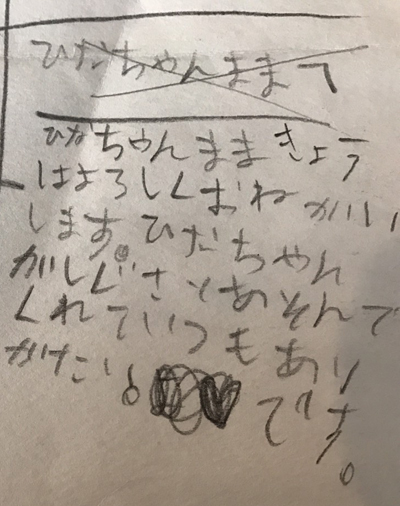 ひだちゃんままへ
ひなちゃんままきょう
はよろしくおねがい
します。ひだちゃん
がしぐさとあそんで
くれていつもあり
がたい!です。